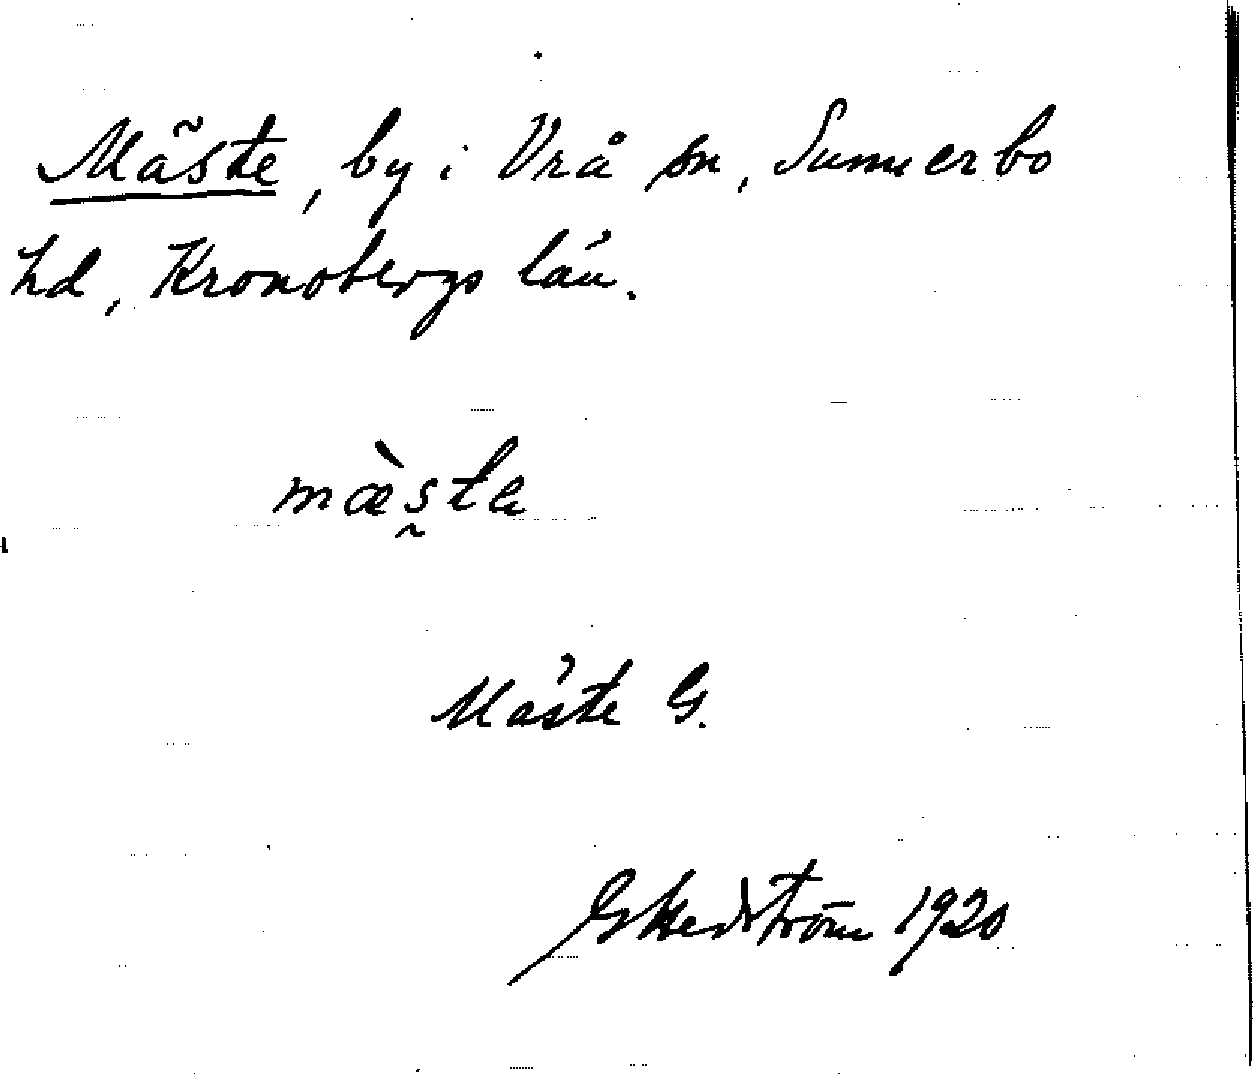 Mäste, by i Vrå sn, Sunnerbo
hd, Kronobergs län.
mæ̀s̰te
Mäste G.
G Hedström 1920